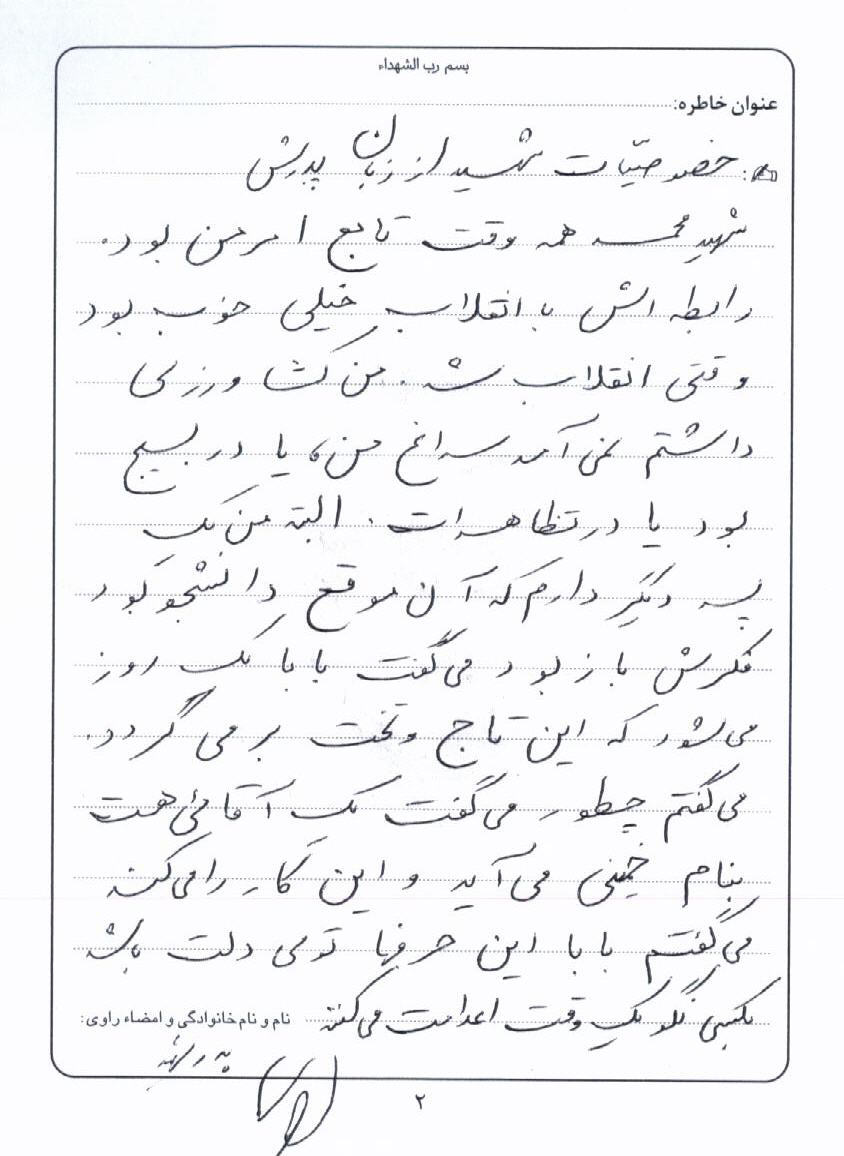 بسم رب الشهداء
عنوان خاطره:
خصوصیّات شهید از زبان پدرش
شهید محمد همه وقت تابع امر من بود.
رابطه اش با انقلاب خیلی خوب بود
وقتی انقلاب شد. من کشاورزی
داشتم نمی آمد سراغ من، یا در بسیج
بود یا در تظاهرات. البته من یک
پسر دیگر دارم که آن موقع دانشجو بود
فکرش باز بود می گفت بابا یک روز
می شود که این تاج و تخت بر می گردد.
می گفتم چطور می گفت یک آقائی هست
بنام خمینی می آید و این کار را می کند
می گفتم بابا این حرفها توی دلت باشد
بکسی نگو یک وقت اعدامت می کنند
نام و نام خانوادگی و امضاء راوی:
پدر شهید
۲